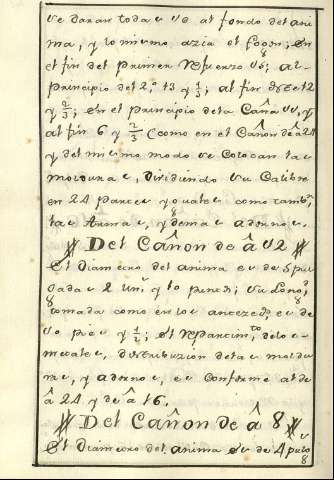 se daran todas 20 al fondo del ani
ma, y lo mismo azia el fogon; en
el fin del primer refuerzo 16; al
principio del 2.º 13 y 1/3; al fin de este 12
y 2/3; en el principio de la Caña 11, y
al fin 6 y 2/3 (como en el Cañon de â 24
y del mismo modo se colocan las
molduras, dividiendo su Calibre
en 24 partes yguales como tambn.
las Armas, y demas adornos.
Del Cañon de â 12
El diametro del anima es de 5 pul
gadas 2 lins. y 10 puntos; su Longd.
tomada como en los antecedtes es de
10 pies y 1/2; el repartimto. de los
metales, distribuzion de las moldu
ras, y adornos, es conforme al de
â 24 y de â 16.
Del Cañon de â 8
El diametro del anima es de 4 pulgs